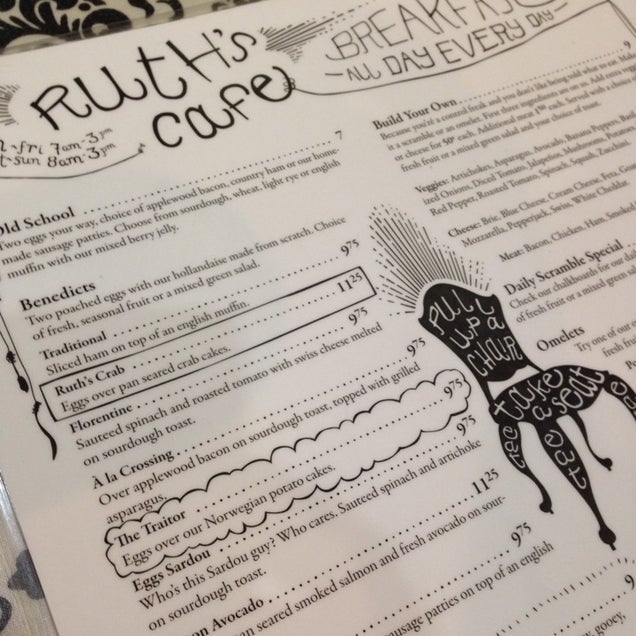 Ruth's
cafe
BREAKFAST
ALL DAY EVERY DAY
-fri 7am-3pm
-sun 8am-3pm
Old School 7
Two eggs your way, choice of applewood bacon, country ham or our home-
made sausage patties. Choose from sourdough, wheat, light rye or english
muffin with our mixed berry jelly.
Benedicts
Two poached eggs with our hollandaise made from scratch. Choice
of fresh, seasonal fruit or a mixed green salad.
Traditional 975
Sliced ham on top of an english muffin.
Ruth's Crab 1125
Eggs over pan seared crab cakes.
Florentine 975
Sauteed spinach and roasted tomato with swiss cheese melted
on sourdough toast.
À la Crossing 975
Over applewood bacon on sourdough toast, topped with grilled
asparagus.
The Traitor 975
Eggs over our Norwegian potato cakes.
Eggs Sardou 975
Who's this Sardou guy? Who cares. Sauteed spinach and artichoke
on sourdough toast.
on Avocado 1125
an seared smoked salmon and fresh avocado on sour-
975
ausage patties on top of an english
gooey,
Build Your Own 9
Because you're a control freak and you don't like being told what to eat. Make
it a scramble or an omelet. First three ingredients are on us. Add extra veggies
or cheese for 50¢ each. Additional meat 150 each. Served with a choice
fresh fruit or a mixed green salad and your choice of toast.
Veggies: Artichokes, Asparagus, Avocado, Banana Peppers,
ized Onions, Diced Tomato, Jalapeños, Mushrooms,
Red Pepper, Roasted Tomato, Spinach, Squash, Zucchini.
Cheese: Brie, Blue Cheese, Cream Cheese, Feta,
Mozzarella, Pepperjack, Swiss, White Cheddar.
Meat: Bacon, Chicken, Ham, Smoked
Daily Scramble Special
Check our chalkboards for our dai
of fresh fruit or a mixed green
Omelets
Try one of our
fresh fru
PULL
UP A
CHAIR
take
a
seat